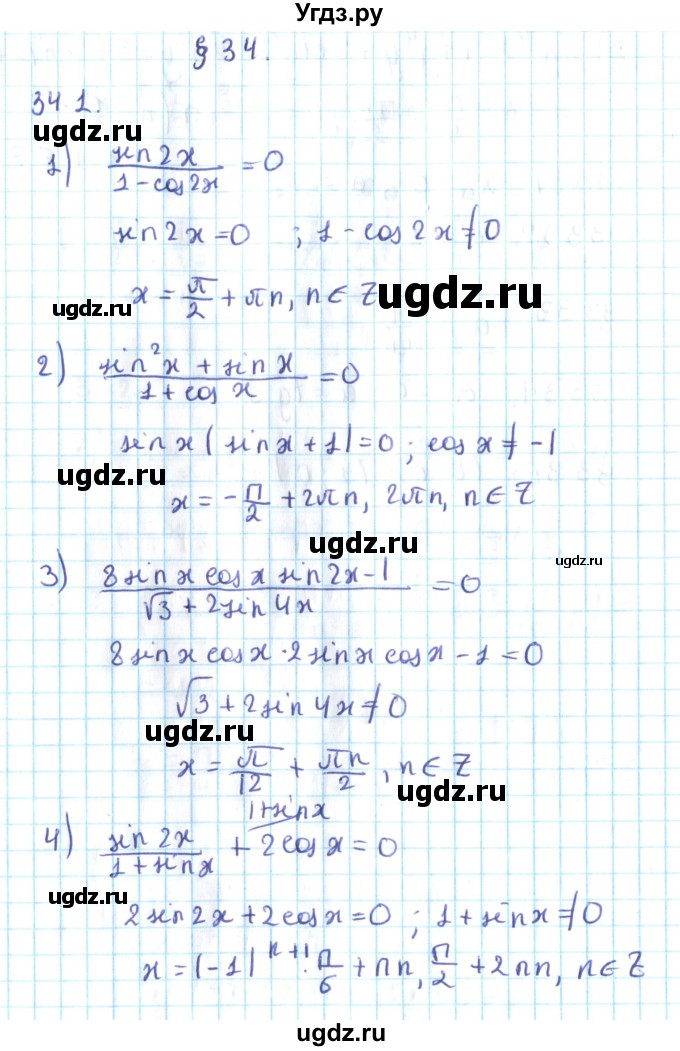 Угдз.ру
§ 34.
34.1.
ugdz.ru
1) sin2x / (1 - cos2x) = 0
sin2x = 0 ; 1 - cos2x ≠ 0
x = π/2 + πn, n ∈ Z
ugdz.ru
ugdz.ru
2) (sin²x + sin x) / (1 + cos x) = 0
sin x (sin x + 1) = 0 ; cos x ≠ -1
ugdz.ru
x = -π/2 + 2πn, 2πn, n ∈ Z
ugdz.ru
ugdz.ru
3) (8 sin x cos x sin2x - 1) / (√3 + 2sin4x) = 0
8 sin x cos x · 2 sin x cos x - 1 = 0
√3 + 2sin4x ≠ 0
ugdz.ru
x = π/12 + πn/2, n ∈ Z
ugdz.ru
4) sin2x / (1 + sin x) + 2cos x = 0
1+sinx
ugdz.ru
2sin2x + 2cos x = 0 ; 1 + sin x ≠ 0
x = (-1)ⁿ⁺¹ · π/6 + πn, π/2 + 2πn, n ∈ Z
ugdz.ru